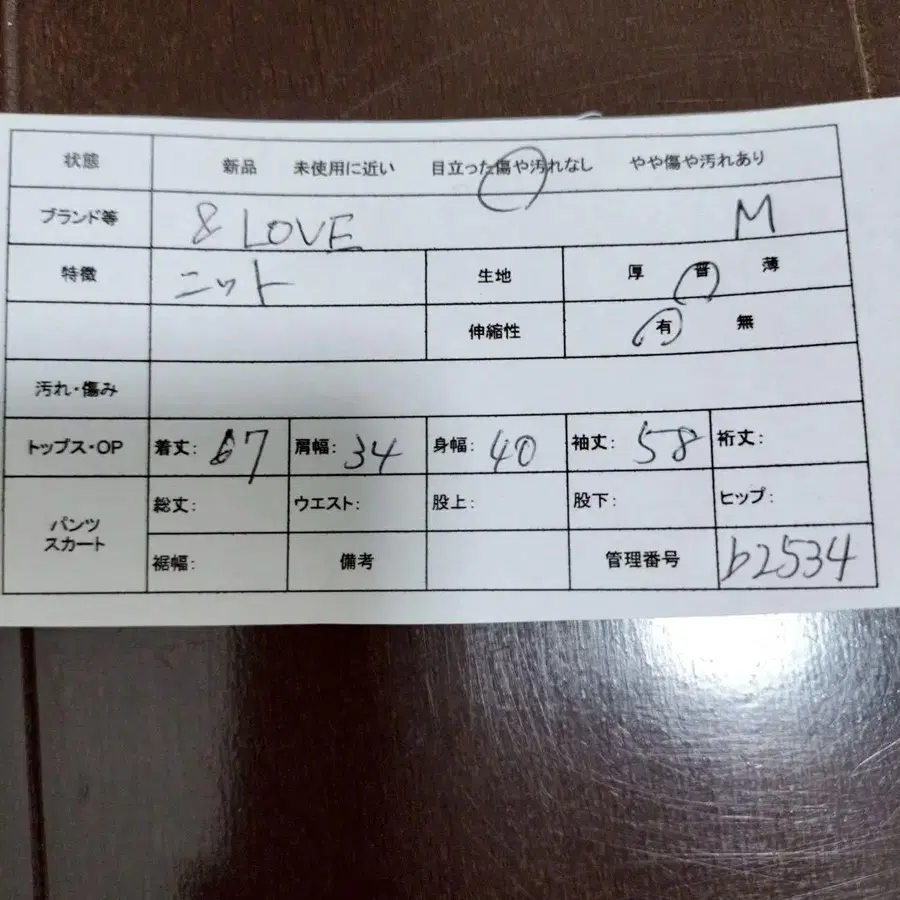 状態 新品 未使用に近い 目立った傷や汚れなし やや傷や汚れあり
ブランド等 & LOVE M
特徴 ニット 生地 厚 普 薄
伸縮性 有 無
汚れ・傷み
トップス・OP 着丈: 67 肩幅: 34 身幅: 40 袖丈: 58 裄丈:
パンツ スカート 総丈: ウエスト: 股上: 股下: ヒップ:
裾幅: 備考 管理番号 b2534